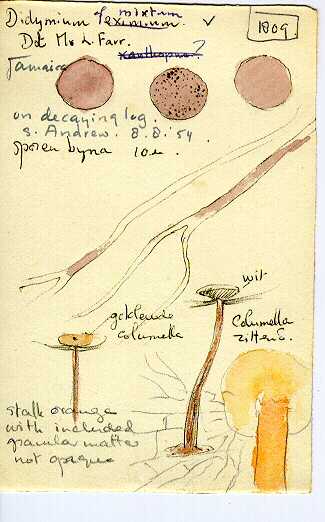 Didymium eximium. mixtum
1809
Det Mr L. Farr.
xanthopus?
Jamaica
on decaying log.
S. Andrew. 8.8.54.
sporen byna 10 u.
wit
gekleurde
columella
Columella
zitten
stalk orange
with included
granular matter
not opaque